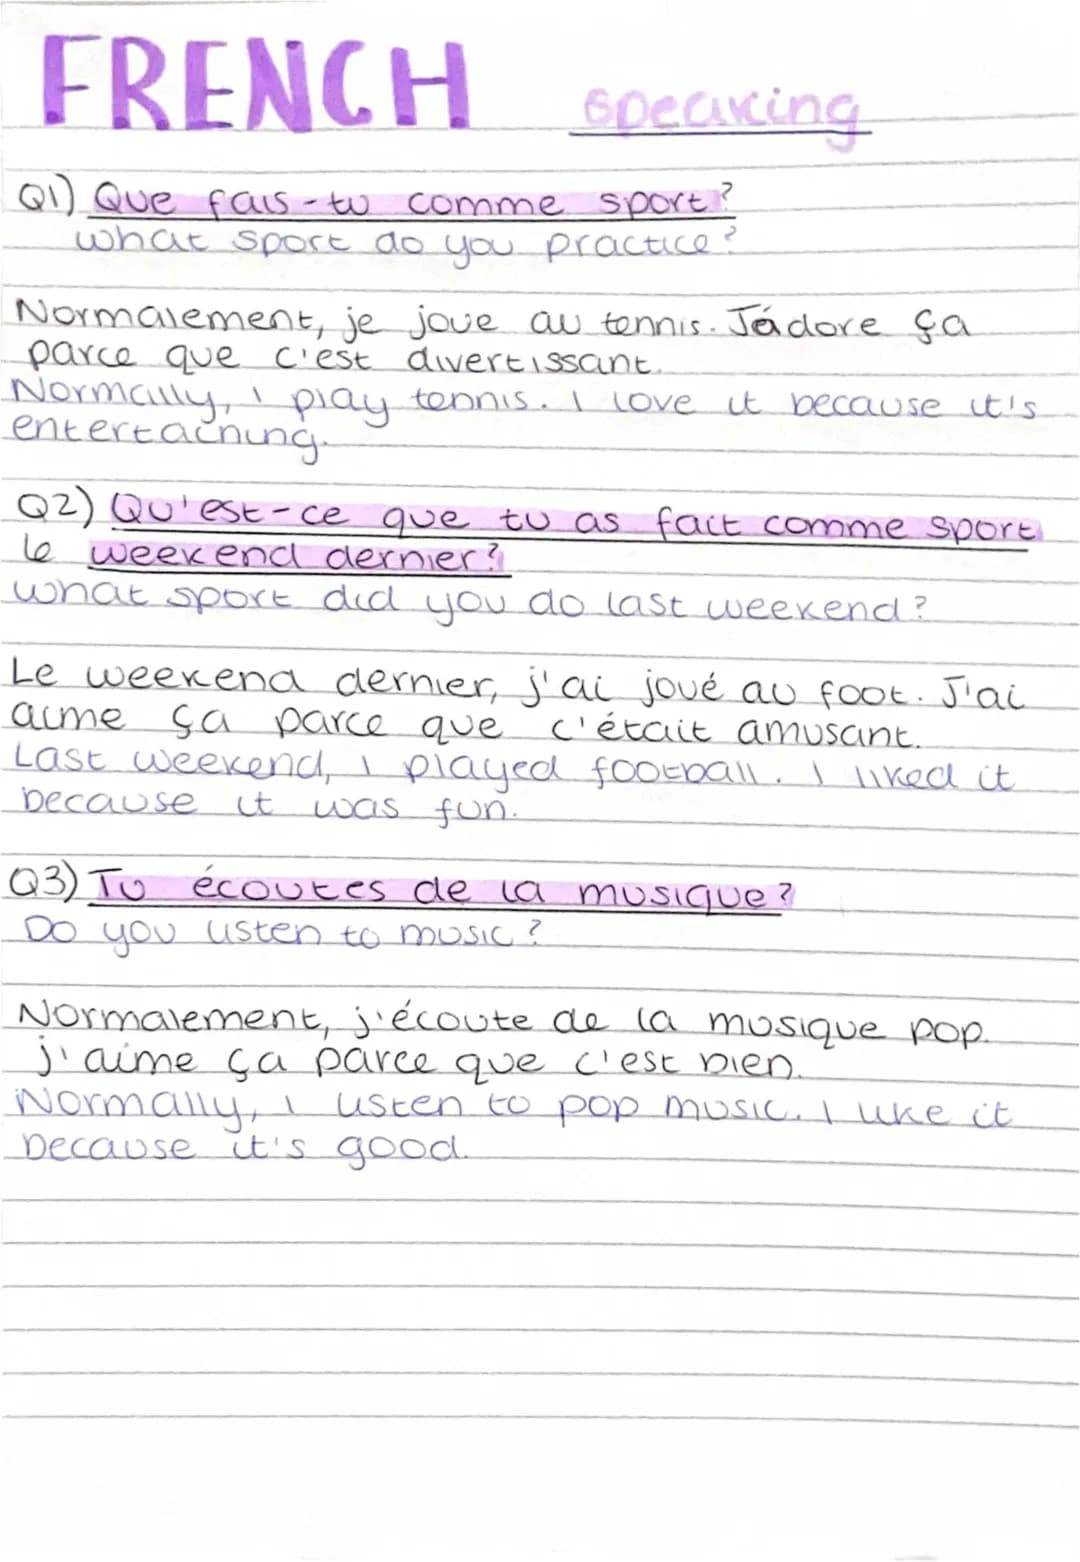 FRENCH speaking
Q1) Que fais-tu comme sport?
What sport do you practice?
Normalement, je joue au tennis. J'adore ça
parce que c'est divertissant.
Normally, I play tennis. I love it because it's
entertaining.
Q2) Qu'est-ce que tu as fait comme sport
le weekend dernier?
What sport did you do last weekend?
Le weekend dernier, j'ai joué au foot. J'ai
aime ça parce que c'était amusant.
Last weekend, I played football. I liked it
because it was fun.
Q3) Tu écoutes de la musique?
Do you listen to music?
Normalement, j'écoute de la musique pop.
j'aime ça parce que c'est bien.
Normally, I listen to pop music. I like it
because it's good.